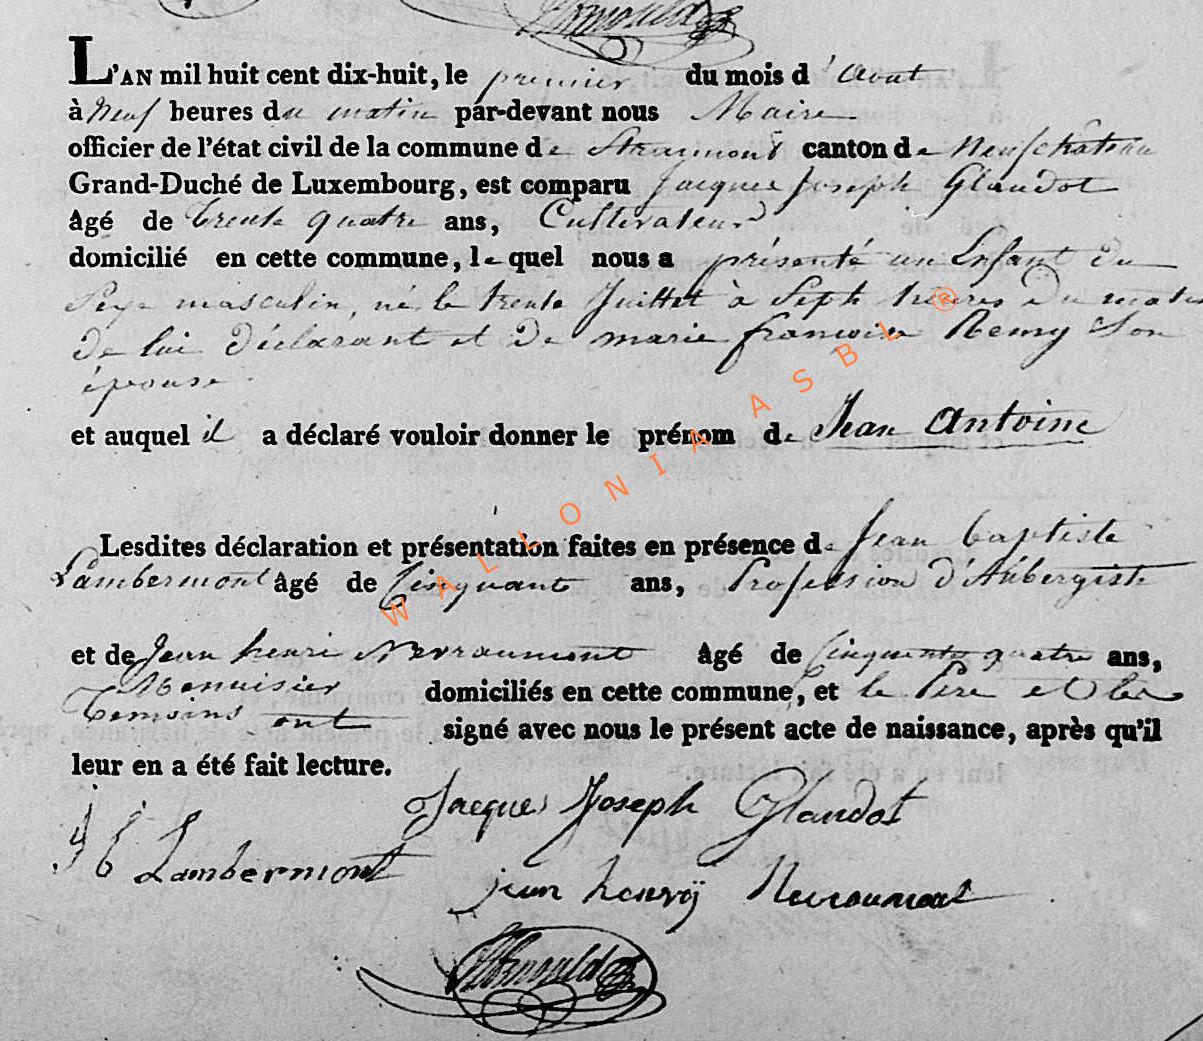 L'AN mil huit cent dix-huit, le premier du mois d'Aout
à Neuf heures du matin par-devant nous Maire
officier de l'état civil de la commune de Straimont canton de Neufchateau
Grand-Duché de Luxembourg, est comparu Jacques Joseph Glaudot
âgé de trente quatre ans, Cultivateur
domicilié en cette commune, lequel nous a présenté un Enfant du
Sexe masculin, né le trente Juillet à Sept heures du matin
de lui déclarant et de marie françoise Remy Son
épouse
et auquel il a déclaré vouloir donner le prénom de Jean Antoine
Lesdites déclaration et présentation faites en présence de Jean baptiste
Lambermont âgé de Cinquant ans, Profession d'Aubergiste
et de Jean henri Nevraumont âgé de Cinquante quatre ans,
Menuisier domiciliés en cette commune, et le Père et les
temoins ont signé avec nous le présent acte de naissance, après qu'il
leur en a été fait lecture.
Jacques Joseph Glaudot
Lambermont
jean henrÿ Nevraumont
WALLONIA ASBL ®